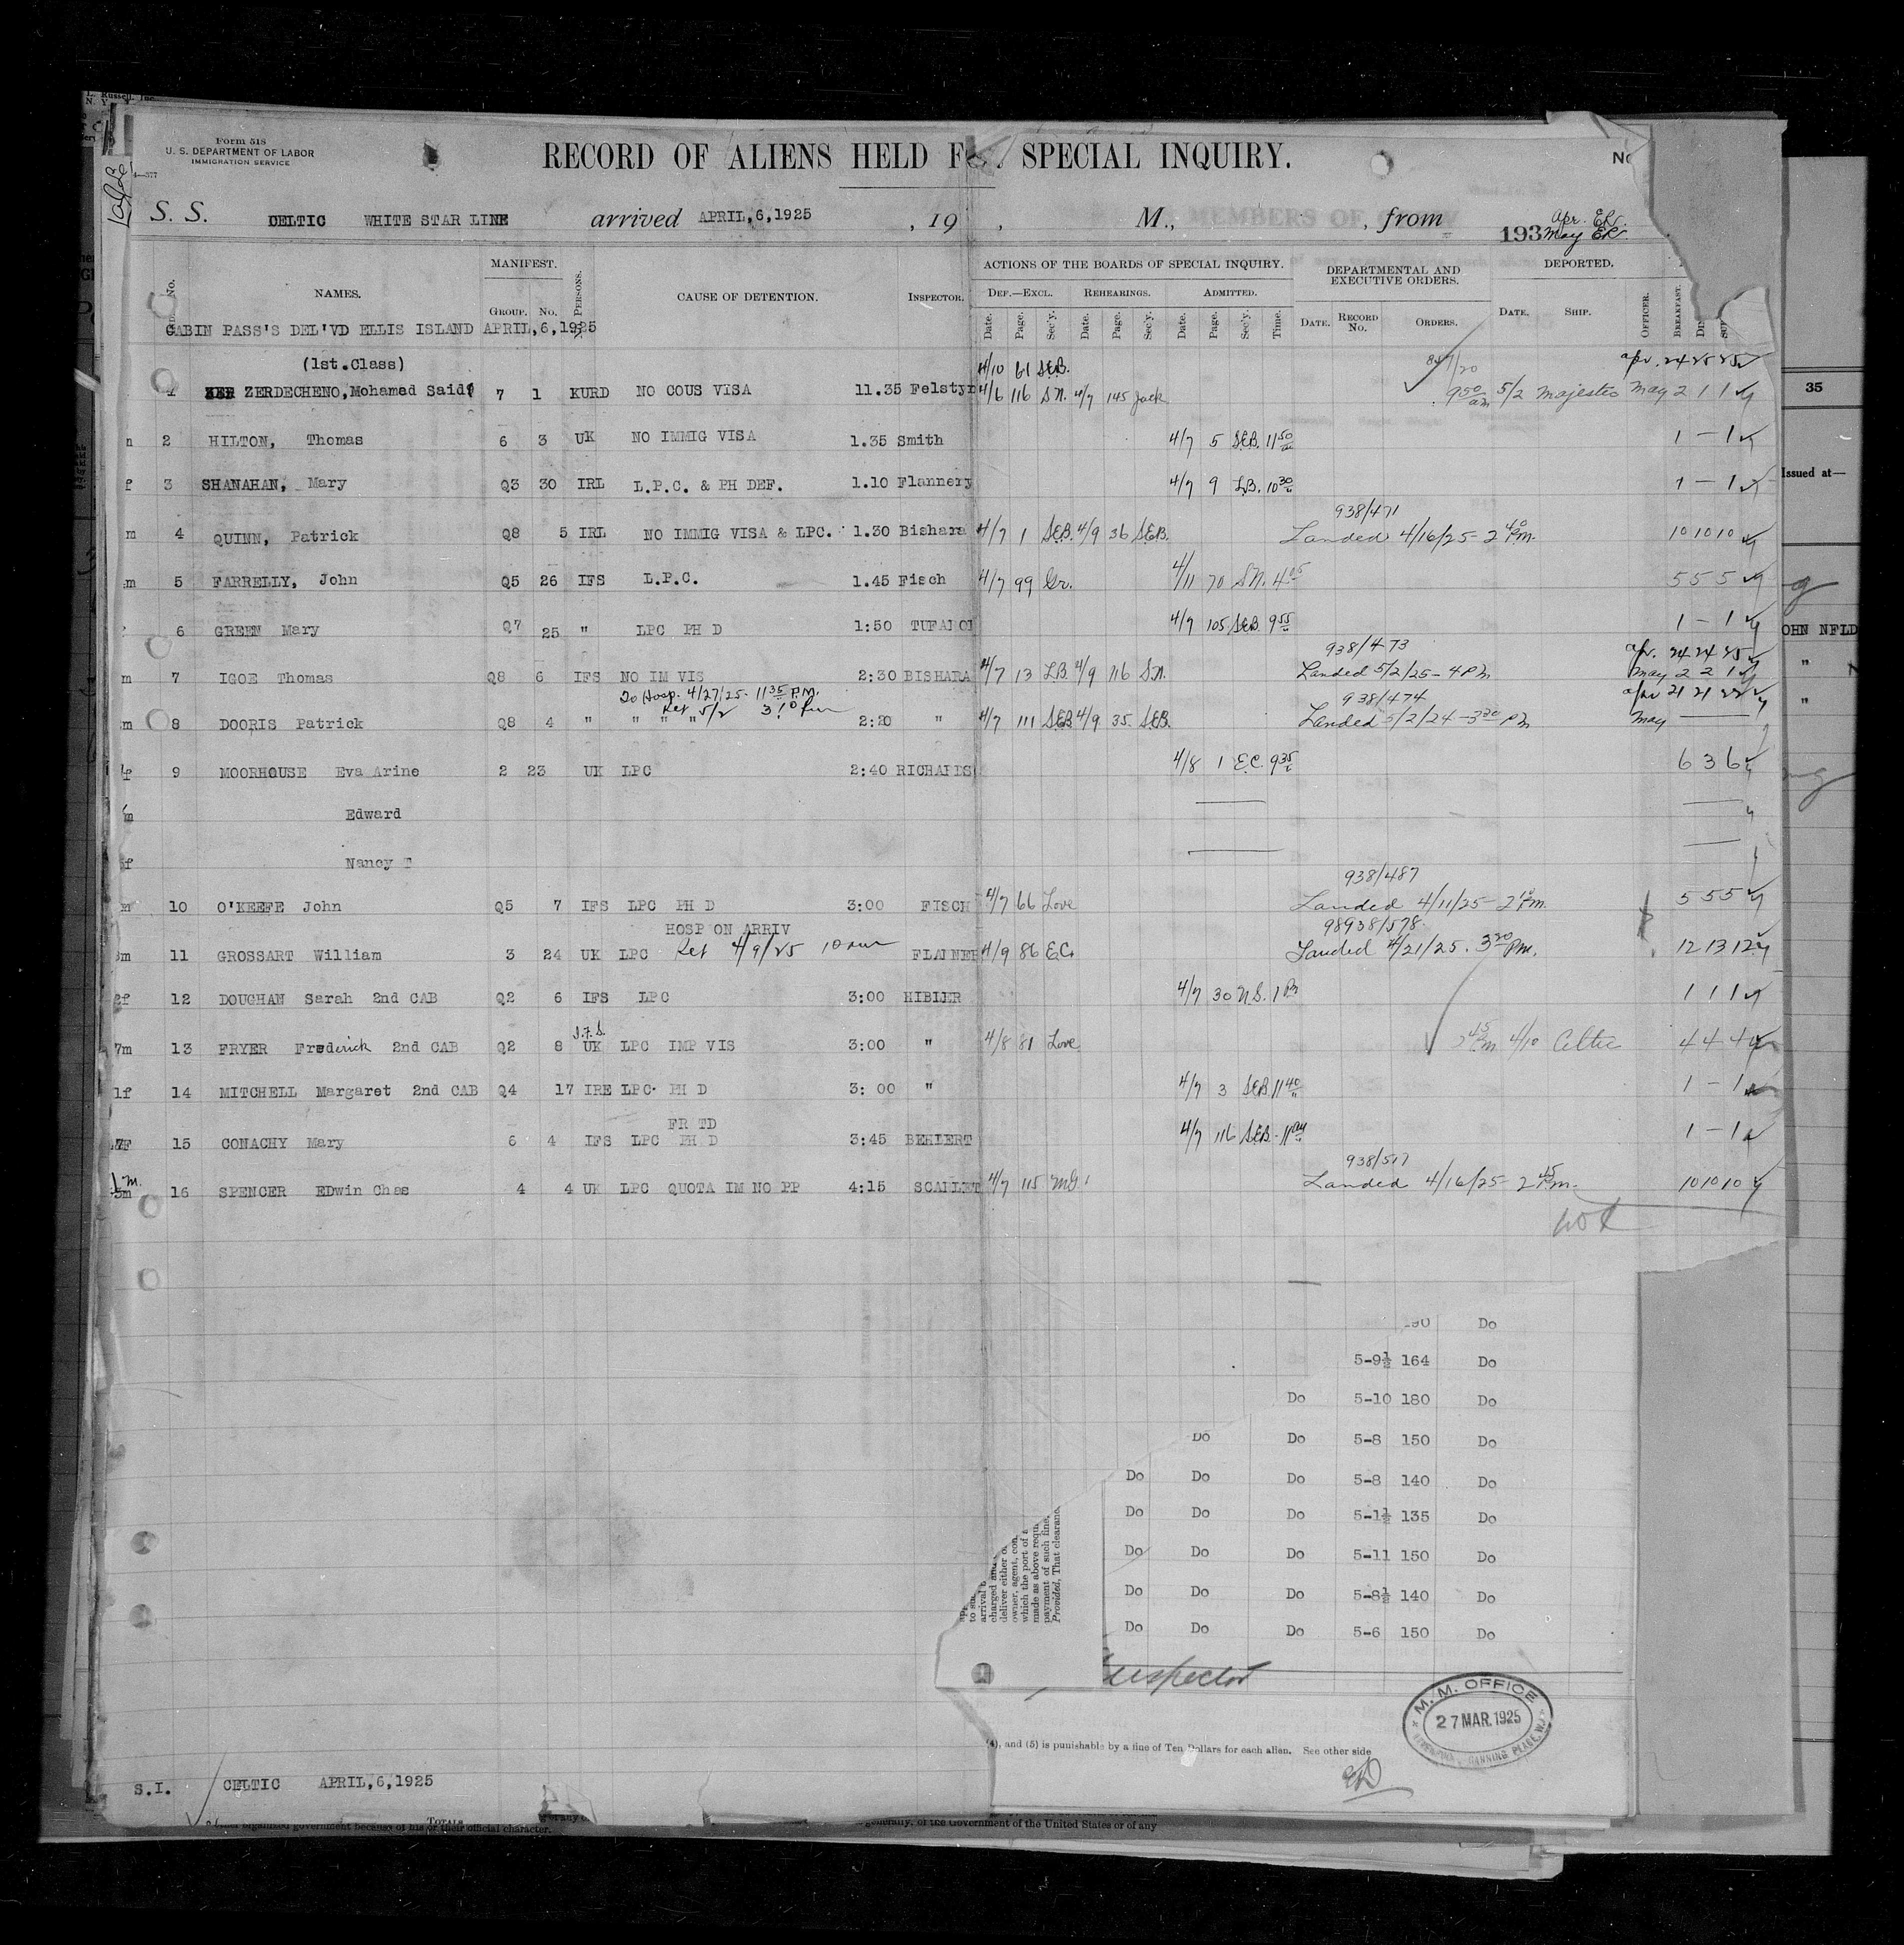 Form 518
U. S. DEPARTMENT OF LABOR
IMMIGRATION SERVICE
4—577
RECORD OF ALIENS HELD F SPECIAL INQUIRY.
No
S. S. CELTIC WHITE STAR LINE arrived APRIL,6,1925 , 19 , M., , from
193 Apr. May
NAMES. MANIFEST. GROUP. NO. PERSONS. CAUSE OF DETENTION. INSPECTOR. ACTIONS OF THE BOARDS OF SPECIAL INQUIRY. DEPARTMENTAL AND EXECUTIVE ORDERS. DEPORTED.
DEF.—EXCL. REHEARINGS. ADMITTED.
Date. Page. Sec'y. Date. Page. Sec'y. Date. Page. Sec'y. Time. DATE. RECORD NO. ORDERS. DATE. SHIP. OFFICER. BREAKFAST.
CABIN PASS'S DEL'VD ELLIS ISLAND APRIL,6,1925
(1st.Class) 4/10 61 SEB. apr. 24 25 25
1 ZERDECHENO, Mohamed Said 7 1 KURD NO COUS VISA 11.35 Felstyn 4/6 116 S.N. 4/7 145 Jack 9 50 am 5/2 Majestic May 2 1 1
2 HILTON, Thomas 6 3 UK NO IMMIG VISA 1.35 Smith 4/7 5 SEB. 11 50 1 — 1
f 3 SHANAHAN, Mary Q3 30 IRL L.P.C. & PH DEF. 1.10 Flannery 4/7 9 LB. 10 30 1 — 1
938/471
m 4 QUINN, Patrick Q8 5 IRL NO IMMIG VISA & LPC. 1.30 Bishara 4/7 1 SEB. 4/9 36 SEB. Landed 4/16/25- 2 40 P.m. 10 10 10
m 5 FARRELLY, John Q5 26 IFS L.P.C. 1.45 Fisch 4/7 99 Gr. 4/11 70 S.N. 4 05 5 5 5
6 GREEN Mary Q7 25 " LPC PH D 1:50 4/7 105 SEB. 9 55 1 — 1
938/473 apr. 24 24 25
m 7 IGOE Thomas Q8 6 IFS NO IM VIS 2:30 BISHARA 4/7 13 LB. 4/9 116 S.N. Landed 5/2/25- 4 Pm May 2 2 1
To Hosp. 4/27/25- 11 35 P.M.
Ret 5/2 3 10 pm 938/474 apr 21 21 22
m 8 DOORIS Patrick Q8 4 " " " " 2:20 " 4/7 111 SEB 4/9 35. SEB. Landed 5/2/24-3 30 Pm May
9 MOORHOUSE Eva Arine 2 23 UK LPC 2:40 RICHARDS 4/8 1 E.C. 9 35 6 3 6
m Edward
f Nancy T
938/487
m 10 O'KEEFE John Q5 7 IFS LPC PH D 3:00 FISCH 4/7 66 Love Landed 4/11/25- 2 10 P.m. 5 5 5
HOSP ON ARRIV 98938/578.
m 11 GROSSART William 3 24 UK LPC Ret 4/9/25 10 am 4/9 86 EC. Landed 4/21/25. 3 20 Pm. 12 13 12
f 12 DOUGHAN Sarah 2nd CAB Q2 6 IFS LPC 3:00 HIBLER 4/7 30 N.S. 1 Pm 1 1 1
I.F.S.
7m 13 FRYER Frederick 2nd CAB Q2 8 UK LPC IMP VIS 3:00 " 4/8 81 Love 4/10 Celtic 4 4 4
1f 14 MITCHELL Margaret 2nd CAB Q4 17 IRE LPC PH D 3:00 " 4/7 3 SEB. 11 40 1 — 1
FR TD
15 CONACHY Mary 6 4 IFS LPC PH D 3:45 4/7 116 SEB - 11 1 — 1
938/517
m 16 SPENCER EDwin Chas 4 4 UK LPC QUOTA IM NO PP 4:15 SCARLET 4/7 115 Landed 4/16/25- 2 45 P.m. 10 10 10
35
Issued at—
OHN NFLD
"
"
Do
5-9½ 164 Do
Do 5-10 180 Do
Do Do 5-8 150 Do
Do Do Do 5-8 140 Do
Do Do Do 5-1½ 135 Do
Do Do Do 5-11 150 Do
Do Do Do 5-8½ 140 Do
Do Do Do 5-6 150 Do
charged
deliver either
owner, agent, con
which the port of
made as above requ
payment of such fine,
Provided, That clearanc
Inspector
M. M. OFFICE
27 MAR. 1925
CANNING PLACE
(4), and (5) is punishable by a fine of Ten Dollars for each alien. See other side
S.I. CELTIC APRIL,6,1925
TOTALS
organized government because of his or their official character.
generally, of the Government of the United States or of any